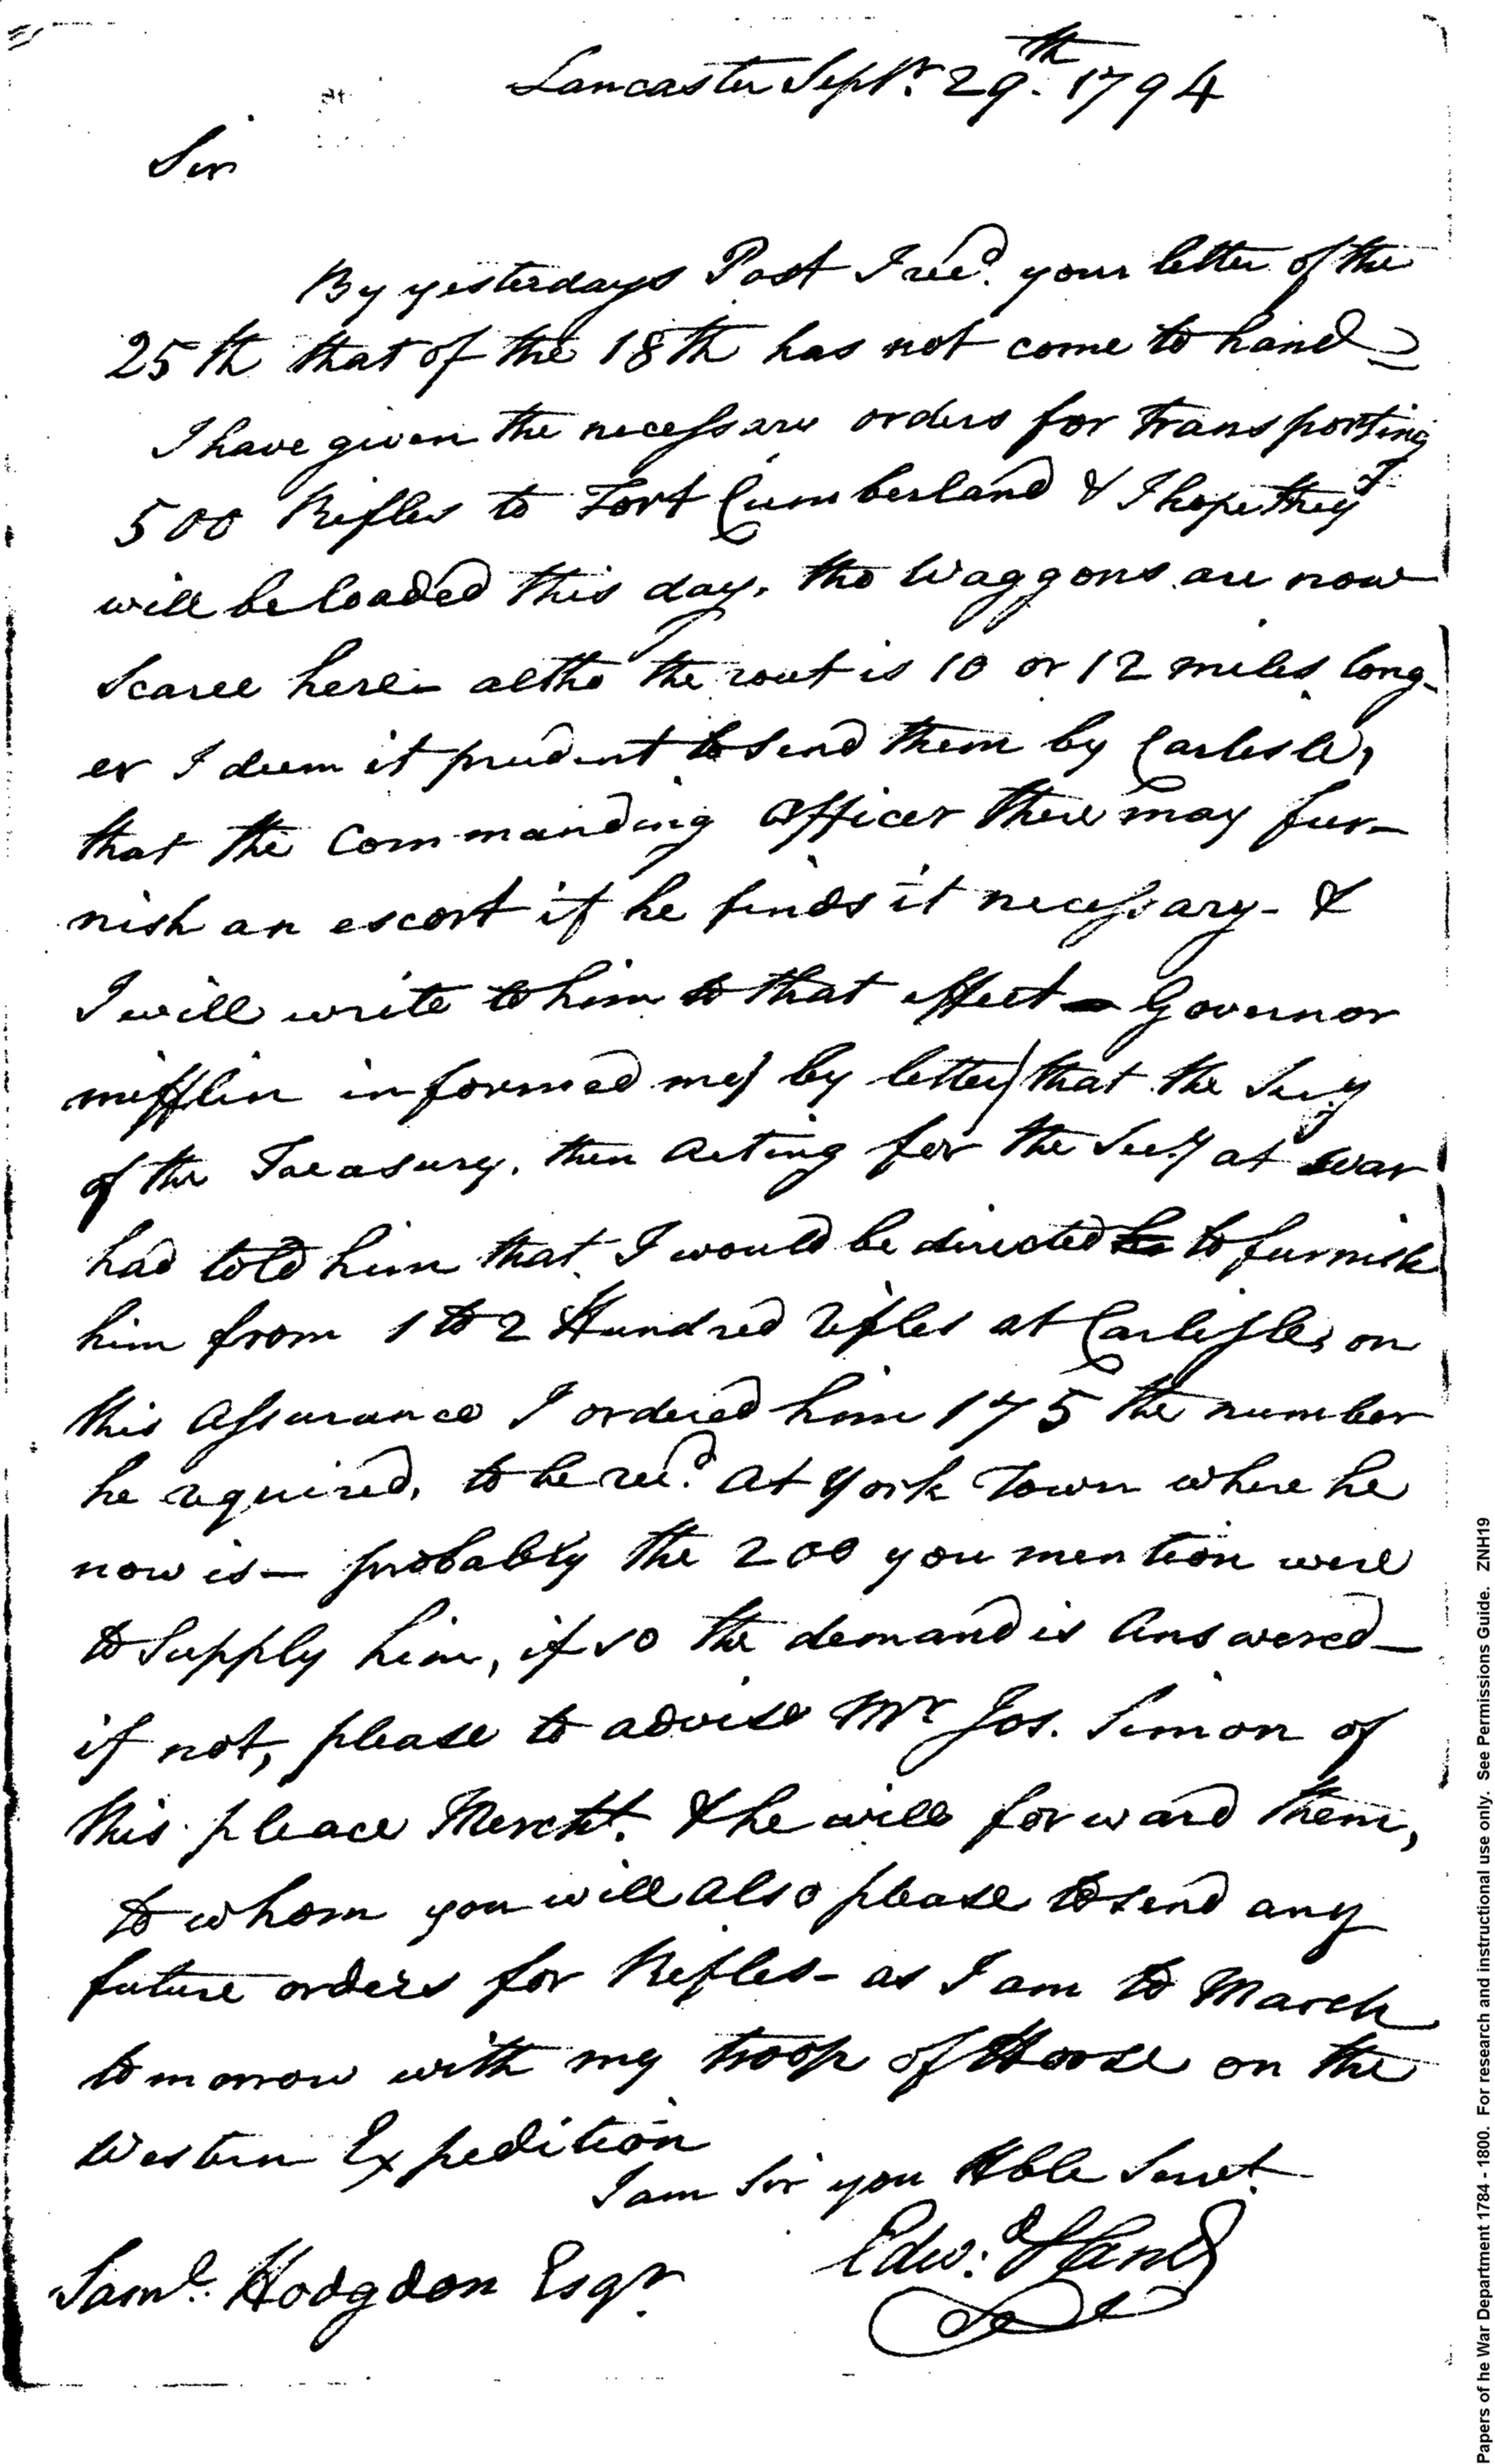 Lancaster Sepr. 29th. 1794
Sir
By yesterdays Post I recd. your letter of the
25th that of the 18th has not come to hand
I have given the necessary orders for transporting
500 Rifles to Fort Cumberland & I hope they
will be loaded this day, tho Waggons are now
Scarce here - altho the rout is 10 or 12 miles long-
er I deem it prudent to send them by Carlisle,
that the Commanding Officer there may fur-
nish an escort if he finds it necessary - &
I will write to him to that effect - Governor
mifflin informed me) by letter) that the Secy
of the Treasury, then acting for the Secy at war
had told him that I would be directed to furnish
him from 1 to 2 Hundred rifles at Carlisle, on
this assurance I ordered him 175 the number
he required, to be recd. at York Town where he
now is - probably the 200 you mention were
to supply him, if so the demand is answered -
if not, please to advise Mr Jos. Simon of
this pleace Mercht. & he will forward them,
to whom you will also please to send any
future orders for Rifles - as I am to March
tomorrow with my troop of Horse on the
Western Expedition
I am Sir you Hble Servt.
Edwd. Hand
Saml. Hodgdon Esqr.
Papers of he War Department 1784 - 1800. For research and instructional use only. See Permissions Guide. ZNH19